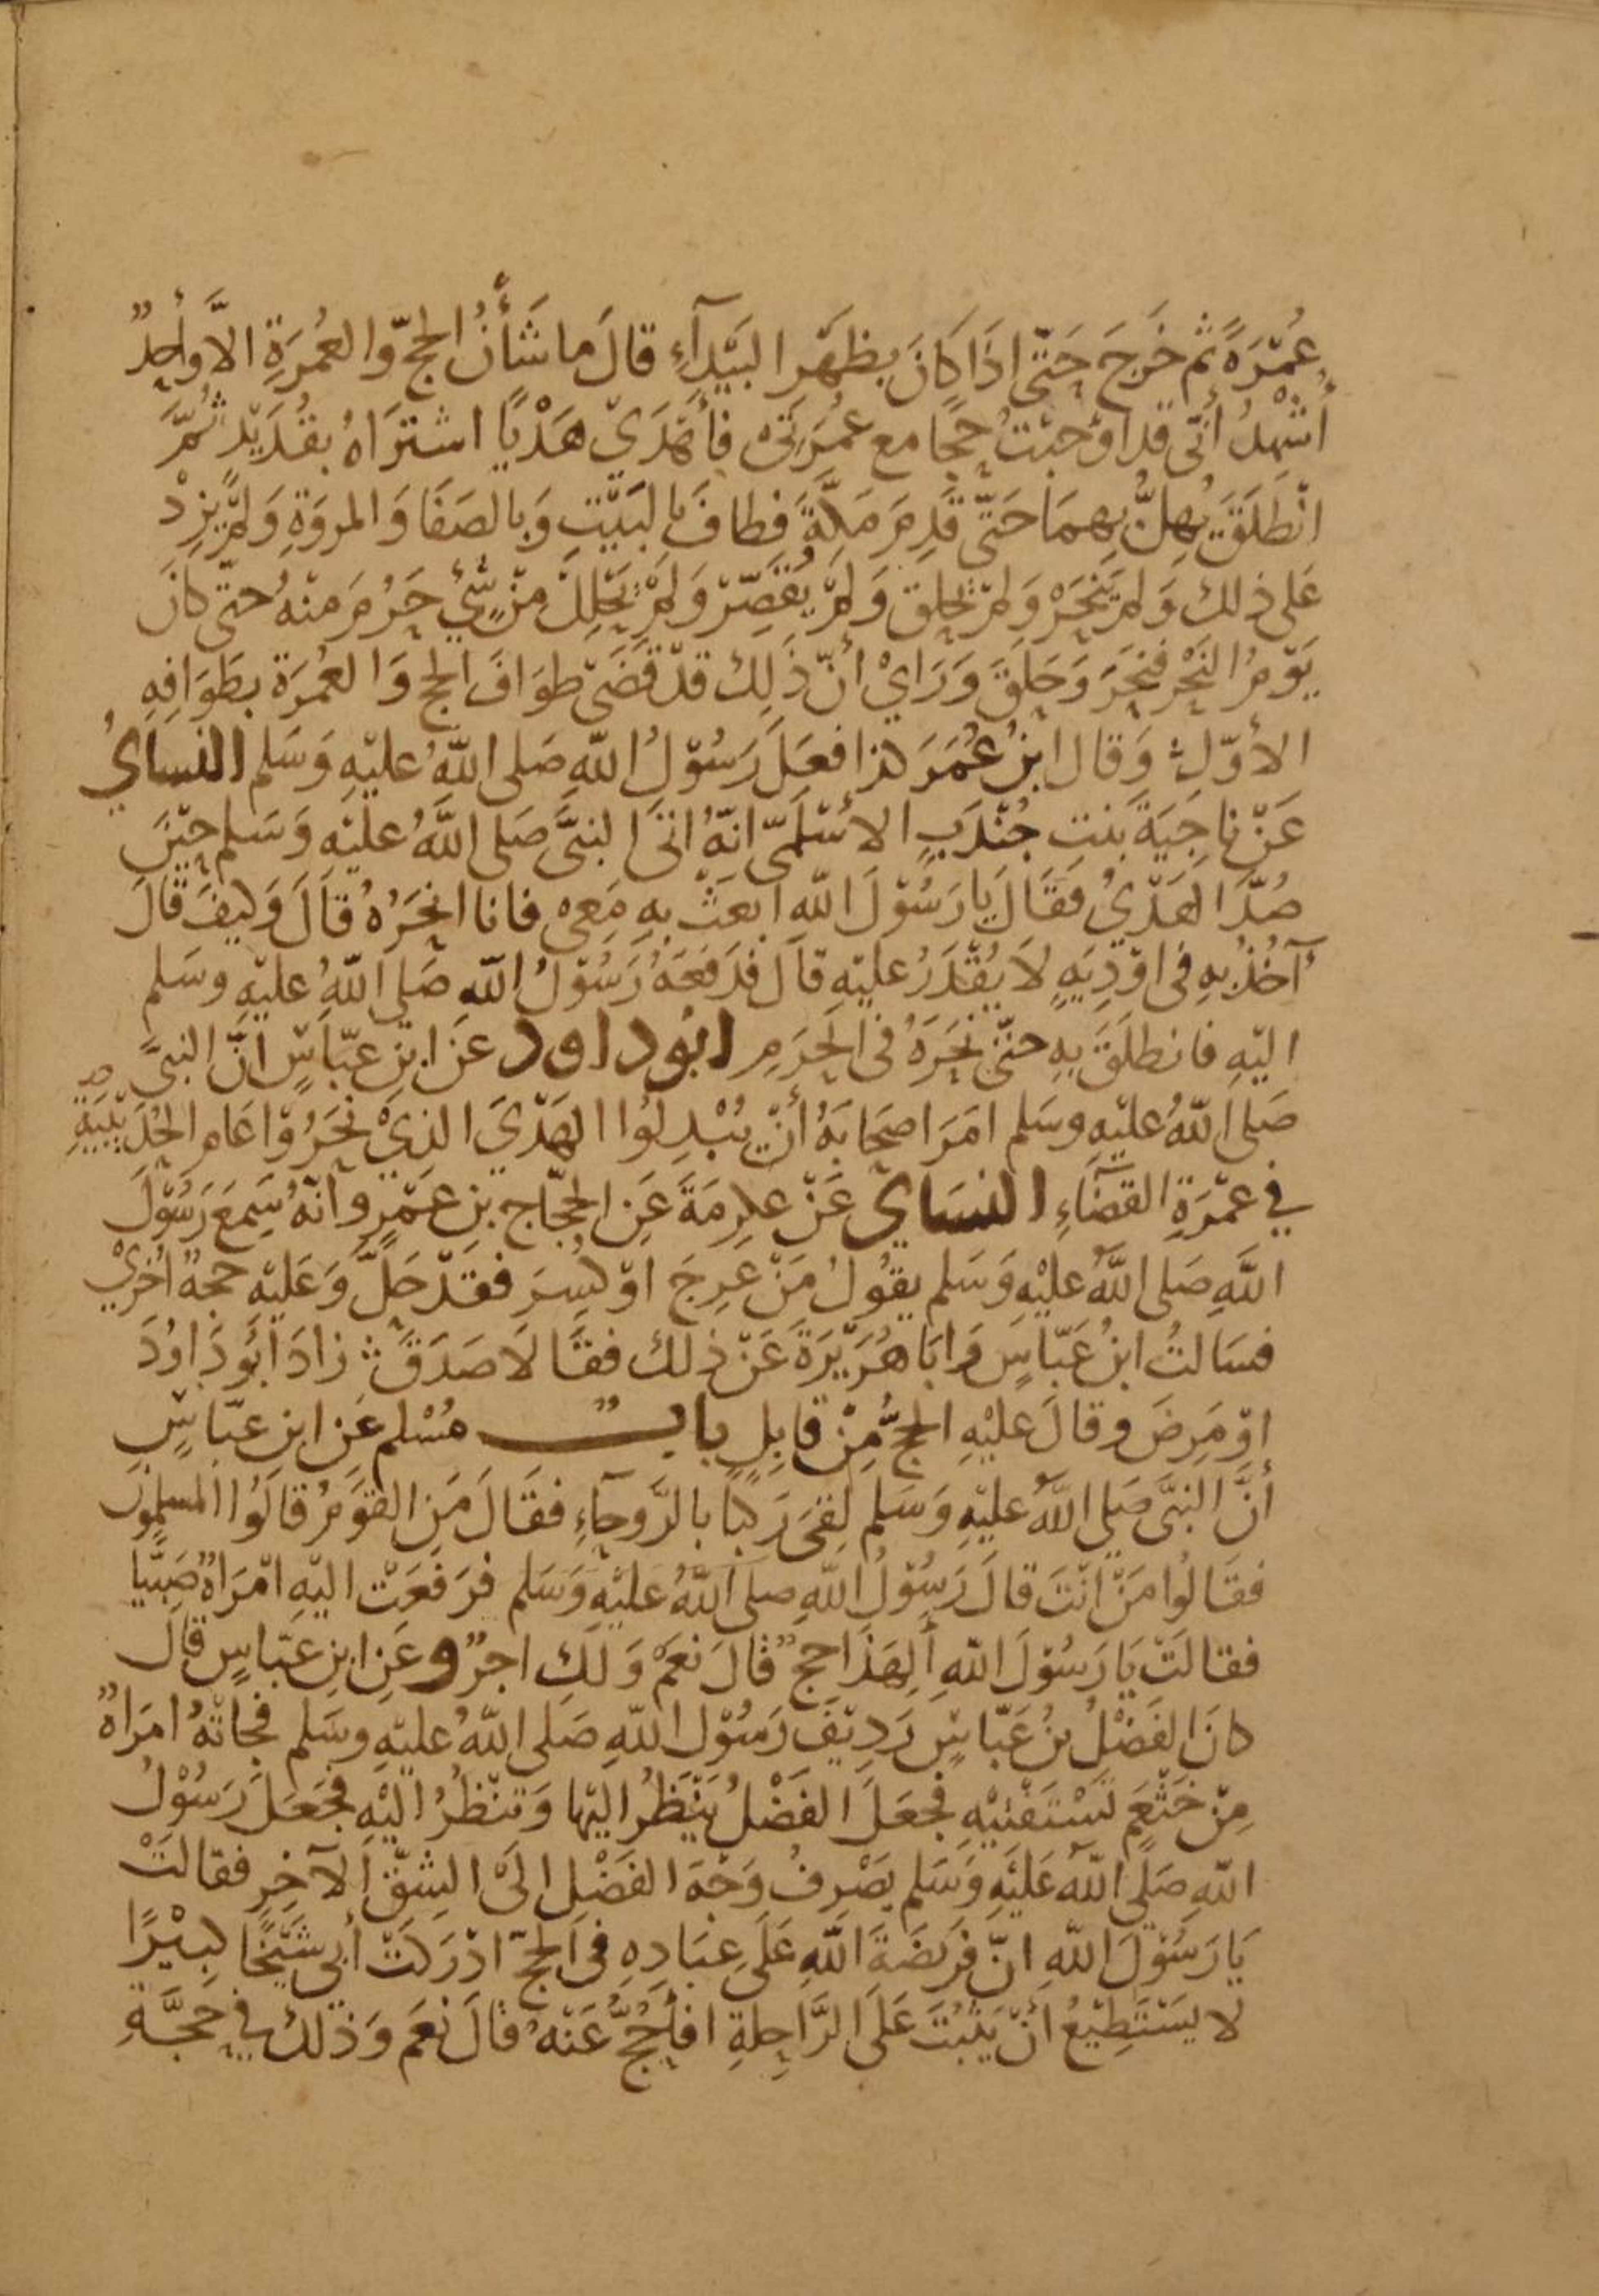 عُمْرَةً ثم خَرجَ حَتّى اذَا كانَ بظهَر البَيْدآءِ قالَ ما شَأنُ الحج وَالعُمْرَةِ الاَّ واحدٌ
أُشْهِدُ أنّى قد اوْجَبْتُ حجًا مع عُمرَتى فأهْدَيْ هَدْيًا اشترَاهُ بقُدَيْدٍ ثُمَّ
انْطَلَقَ يُهِلُّ بِهِمَا حَتّى قَدِمَ مَكَّةَ فطافَ بالبَيْتِ وَبالصَفَا وَالمروَةِ وَلمْ يزِدْ
عَلى ذلكَ وَلم يَنْحَرْ وَلمْ يحلِق وَلمْ يُقَصِّرْ وَلمْ يَحْلِلْ مِنْ شَيْءٍ حَرُمَ منْهُ حتّى كانَ
يَوْمُ النَّحْر فنحَرَ وَحَلقَ وَرَايْ أنّ ذَلِكَ قدْ قَضَى طوَافَ الحج وَالعُمرَة بطَوَافِهِ
الأوّلِ وَقال ابنُ عُمَرَ كذا فعَلَ رَسُوْلُ اللّهِ صَلى اللّهُ عليْهِ وَسَلم النسايُ
عَنْ ناجِيَةَ بَنتِ جُنْدَبٍ الاسْلَمىّ انهُ اتَى النبىَّ صَلى اللَّهُ عليْهِ وَسَلم حيْنَ
صُدَّ الهَدْيُ فقَالَ يا رَسُوْلَ اللّهِ ابعَثْ بهِ مَعِى فانا انحَرُهُ قالَ وَكيفَ قالَ
آخُذُ بهِ فى اوْدِيَةٍ لاَ يُقْدَرُ عليْهِ قالَ فدَفعَهُ رَسُوْلُ اللّهِ صَلى اللّهُ عليْهِ وسَلم
اليْهِ فانطلَقَ بِهِ حتّى نحَرَهُ فى الحَرَمِ ابُو داود عَن ابنِ عبّاسٍ انَّ النبىَّ
صَلى اللّهُ عليْهِ وسَلم امَرَ اصحَابَهُ أنْ يُبْدِلوُا الهَدْيَ الذِيْ نحَرُوْا عَام الحُدَيْبيَةِ
في عمْرَةِ القضَاءِ النسَايُ عَنْ عكرِمَةَ عَنِ الحجّاج بن عَمْرٍو انّهُ سَمِعَ رَسُوْلَ
اللَّهِ صَلى اللَّهُ عليْهِ وَسَلم يقوُلُ مَنْ عَرِجَ اوْ كُسِرَ فقدْ حَلَّ وَعَليْهِ حجةٌ اُخرَيْ
فسَالتُ ابنَ عَبّاسٍ وَابَا هُرَيْرَةَ عَنْ ذلكَ فقَالاَ صَدَقَ زادَ ابُو دَاوُدَ
اوْ مَرِضَ وقالَ عليْهِ الحجُّ مِنْ قابِلٍ بابٌ مُسْلم عَن ابن عبّاسٍ
أنَّ النبىَّ صَلى اللَّهُ عليْهِ وَسَلم لقىَ رَكبًا بالرَّوحآءِ فقَالَ مَنِ القوَمُ قالَوُا المسلمُونَ
فقَالوُا مَنْ انْتَ قالَ رَسُوْلُ اللّهِ صلى اللّهُ عليْهِ وَسَلم فرَفعَتْ اليْهِ امْرَاةٌ صَبيًّا
فقالَتْ يَا رَسُوْلَ اللّهِ أَلِهَذَا حجٌّ قالَ نعَمْ وَلَكِ اجرٌ وعَنِ ابنِ عبّاسٍ قالَ
كانَ الفَضْلُ بنُ عَبّاسٍ رَدِيْفَ رَسُوْلِ اللّهِ صَلى اللّهُ عليْهِ وسَلم فجاتْهُ امرَاةٌ
مِنْ خَثْعَمَ تَسْتَفْتيْهِ فجعَلَ الفَضْلُ يَنْظرُ اليْها وَتنْظرُ اليْهِ فجعَلَ رَسُوْلُ
اللّهِ صَلى اللّهُ عَليْهِ وَسَلم يصَرِفُ وَجْهَ الفَضْلِ الىَ الشِقّ الآخِرِ فقالتْ
يَا رَسُوْلَ اللّهِ انّ فرَيضَةَ اللّهِ عَلَى عِبَادِهِ فى الحجّ ادْرَكَتْ أبى شَيْخًا كَبيْرًا
لا يسَتَطِيْعُ أنْ يَثبُتَ عَلَى الرَّاحِلةِ افأحُجُّ عَنْهُ قالَ نعَم وَذلك في حَجَّةِ